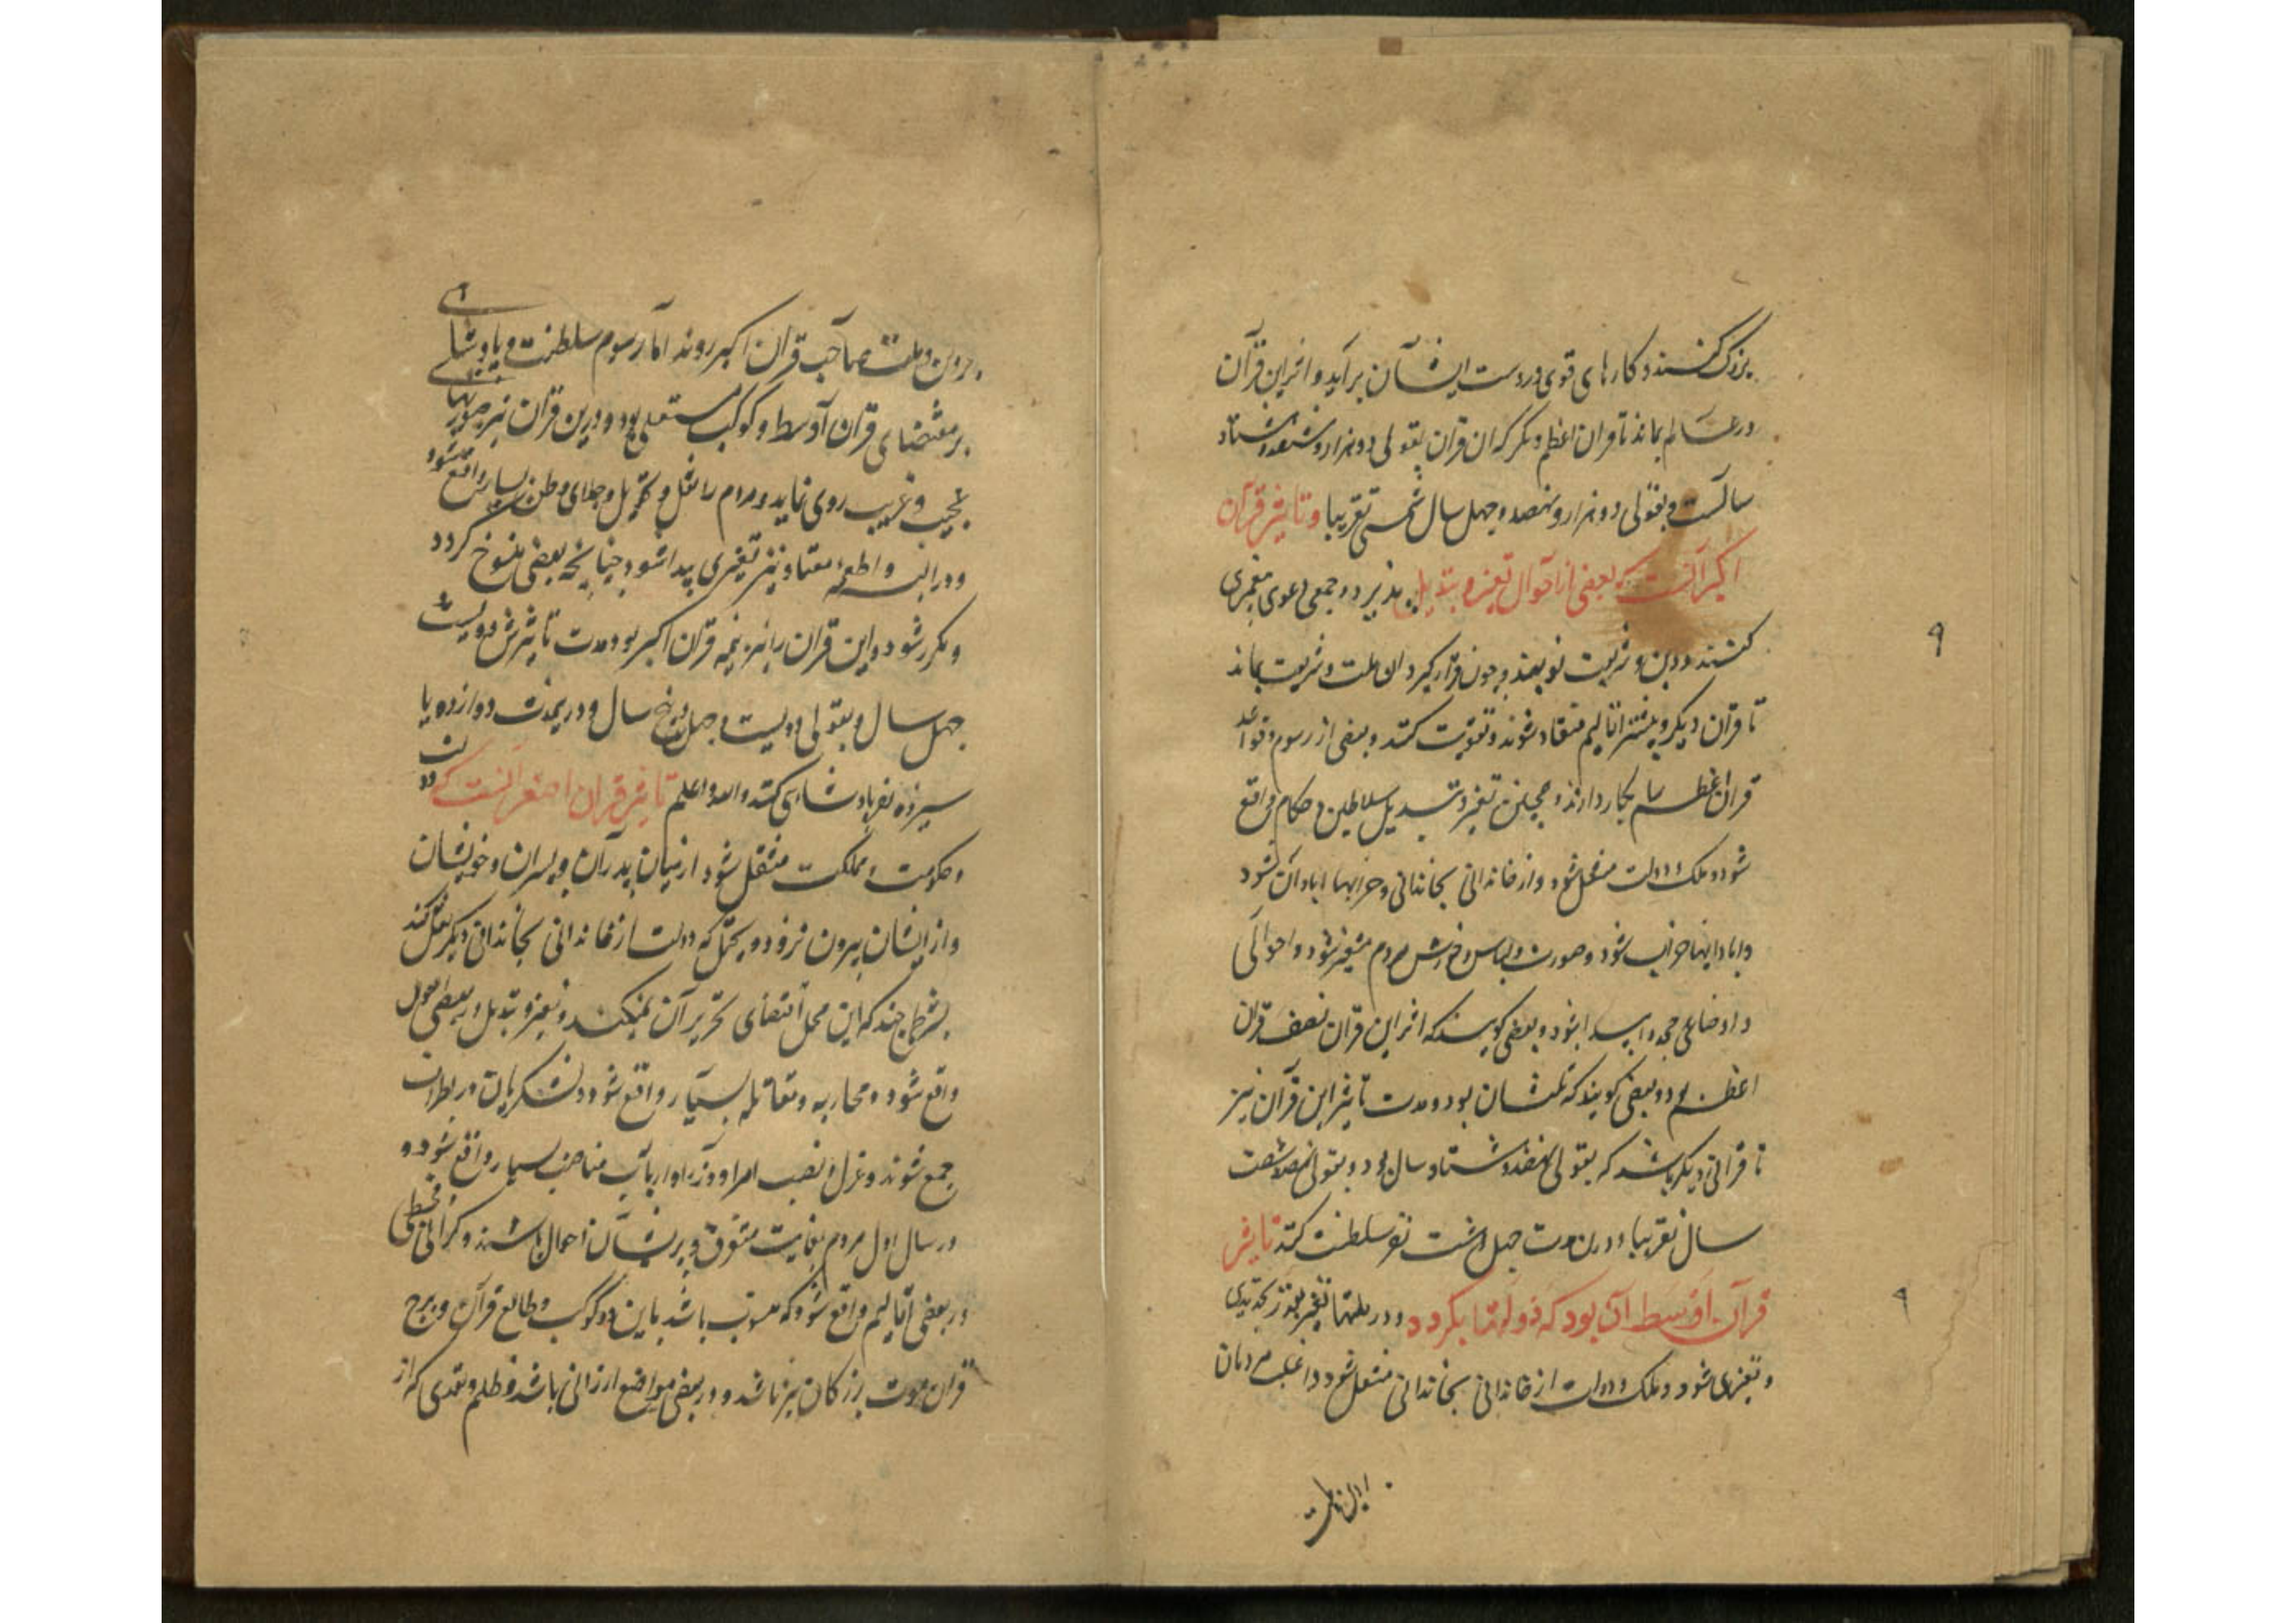 بزرک کنند و کارهای قوی در دست ایشان برآید و اثر این قرآن
در عالم بماند تا قران اعظم دیکر که ان قران بقولی دو هزار و هشتاد
سالست و بقولی دو هزار و نهصد و چهل سال شمسی تقریبا و تاثیر قرآن
اکبر آنست که بعضی از احوال تغییر و تبدیل پذیرد و جمعی دعوی پیغمبری
کنند و دین و شریعت نو نهند و چون قرار کیرد ان ملت و شریعت بماند
تا قران دیکر و بیشتر اقالیم منقاد شوند و تقویت کنند و بعضی از رسوم و قواعد
قران اعظم بکار دارند و همچنین تغییر و تبدیل سلاطین و حکام واقع
شود و ملک و دولت منتقل شود و از خاندانی بخاندانی و خرابیها ابادان شود
و ابادانیها خراب شود و صورت و لباس و خورش مردم متغیر شود و احوالی
و اوضاعی مجدد پیدا شود و بعضی کویند که اثر این قران نصف قران
اعظم بود و بعضی کویند که ثلث ان بود و مدت تاثیر این قرآن نیز
تا قرانی دیکر باشد که بقولی نهصد و هشتاد سال بود و بقولی نهصد و شصت
سال تقریبا و درین مدت چهل و هشت نفر سلطنت کنند تاثیر
قرآن اوسط آن بود که دولتها بکردد و در ملتها تغییر
و تغییری شود و ملک و دولت از خاندانی بخاندانی منتقل شود و اغلب مردمان
بر دین و ملت صاحب قران اکبر روند اما رسوم سلطنت و پادشاهی
بر مقتضای قران اوسط و کوکب مستعلی بود و درین قران نیز صورتهای
عجیب و غریب روی نماید و مردم را نقل و تحویل و جلای وطن بسیار واقع شود
و در البسه و اطعمه معتاد نیز تغییری پیدا شود چنانچه بعضی منسوخ کردد
و مکرر شود و این قران را نیز نیمه قران اکبر بود مدت تاثیرش دویست
چهل سال و بقولی دویست و چهل و پنج سال و درین مدت دوازده یا
سیزده نفر پادشاهی کنند والله اعلم تاثیر قران اصغر انست که دولت
و حکومت و مملکت منتقل شود از میان پدران و پسران و خویشان
و از ایشان بیرون نرود و یحتمل که دولت از خاندانی بخاندانی دیکر نقل کند
بشرط چند که این محل اقتضای تحریر آن نمیکند و تغییر و تبدیل در بعضی اصول
واقع شود و محاربه و مقاتله بسیار واقع شود و لشکریان در اطراف
جمع شوند و عزل و نصب امرا و وزرا و ارباب مناصب بسیار واقع شود و
در سال اول مردم بغایت متفرق و پریشان احوال باشند و کرانی و قحطی
در بعضی اقالیم واقع شود که منسوب باشد باین دو کوکب و طالع قرآن و برج
قران و موت بزرکان نیز باشد و در بعضی مواضع ارزانی باشد و ظلم و تعدی که از